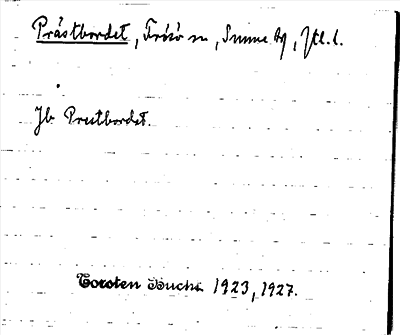 Prästbordet, Frösö sn, Sunne tg, Jtl. l.
Jb. Prestbordet.
Torsten Bucht 1923, 1927.